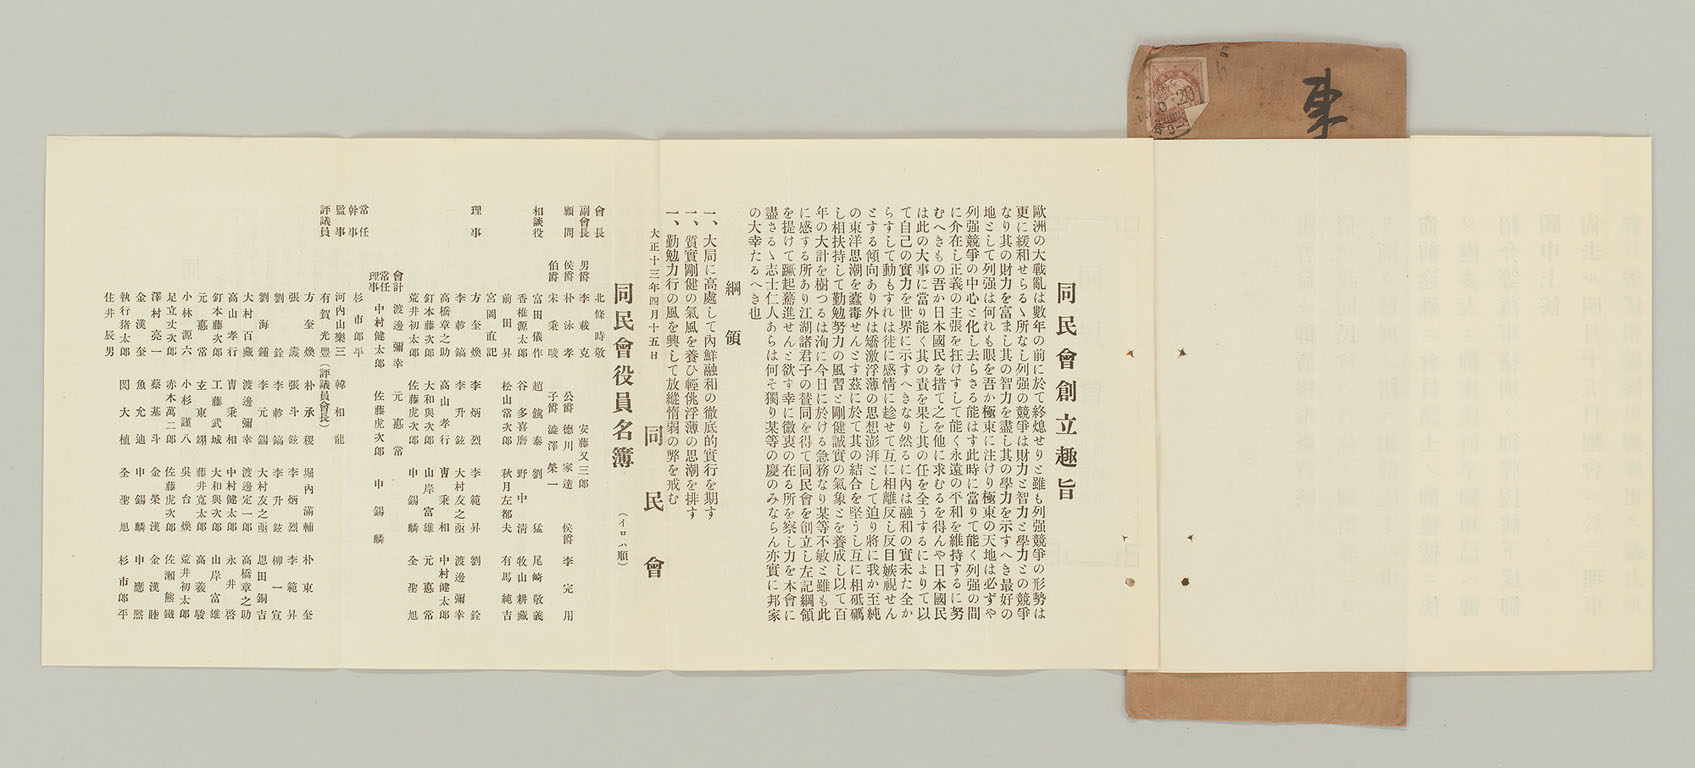 東
同民會創立趣旨
歐洲の大戰亂は數年の前に於て終熄せりと雖も列强競爭の形勢は
更に緩和せらるゝ所なし列强の競爭は財力と智力と學力との競爭
なり其の財力を富まし其の智力を盡し其の學力を示すへき最好の
地として列强は何れも眼を吾か極東に注けり極東の天地は必すや
列强競爭の中心と化し去らさる能はす此時に當りて能く列强の間
に介在し正義の主張を抂けすして能く永遠の平和を維持するに努
むへきもの吾か日本國民を措て之を他に求むるを得んや日本國民
は此の大事に當り能く其の責を果し其の任を全うするによりて以
て自己の實力を世界に示すへきなり然るに內は融和の實未た全か
らすして動もすれは徒に感情に趁せて互に相離反し反目嫉視せん
とする傾向あり外は矯激浮薄の思想澎湃として迫り將に我か至純
の東洋思潮を蠹毒せんとす茲に於て其の結合を堅うし互に相砥礪
し相扶持して勤勉努力の風習と剛健誠實の氣象とを養成し以て百
年の大計を樹つるは洵に今日に於ける急務なり某等不敏と雖も此
に感する所あり江湖諸君子の賛同を得て同民會を創立し左記綱領
を提けて蹶起驀進せんと欲す幸に微衷の在る所を察し力を本會に
盡さるゝ志士仁人あらは何そ獨り某等の慶のみならん亦實に邦家
の大幸たるへき也
綱領
一、大局に高處して內鮮融和の徹底的實行を期す
一、質實剛健の氣風を養ひ輕佻浮薄の思潮を排す
一、勤勉力行の風を興して放縱惰弱の弊を戒む
大正十三年四月十五日
同民會
同民會役員名簿
（イロハ順）
會長 北條時敬
副會長 男爵 李載克 安藤又三郎
顧問 侯爵 朴泳孝 公爵 德川家達 侯爵 李完用
伯爵 宋秉畯 子爵 澁澤榮一
相談役 富田儀作 趙鎭泰 劉猛 尾崎敬義
香椎源太郎 谷多喜磨 野中淸 牧山耕藏
前田昇 松山常次郎 秋月左都夫 有馬純吉
宮岡直記
理事 方奎煥 李炳烈 李範昇 劉銓
李軫鎬 李升鉉 大村友之亟 渡邊彌幸
高橋章之助 高山孝行 曺秉相 中村健太郎
釘本藤次郎 大和與次郎 山岸富雄 元悳常
荒井初太郎 佐藤虎次郎 申錫麟 全聖旭
會計 渡邊彌幸 元悳常
常任理事 中村健太郎 佐藤虎次郎 申錫麟
常任幹事 杉市郎平
監事 河內山樂三 韓相龍
評議員 有賀光豐（評議員會長）
方奎煥 朴承稷 堀內滿輔 朴東奎
張燾 張斗鉉 李炳烈 李範昇
劉銓 李軫鎬 李升鉉 柳一宣
劉海鍾 李元錫 大村友之亟 恩田銅吉
大村百藏 渡邊彌幸 渡邊定一郎 高橋章之助
高山孝行 曺秉相 中村健太郎 永井啓
釘本藤次郎 工藤武城 大和與次郎 山岸富雄
元悳常 玄東翊 藤井寬太郎 高義駿
小林源六 小杉謹八 吳台煥 荒井初太郎
足立丈次郎 赤木萬二郎 佐藤虎次郎 佐瀨熊鐵
澤村亮一 蔡基斗 金榮漢 金漢睦
金漢奎 魚允迪 申錫麟 申應熙
執行猪太郎 閔大植 全聖旭 杉市郎平
住井辰男